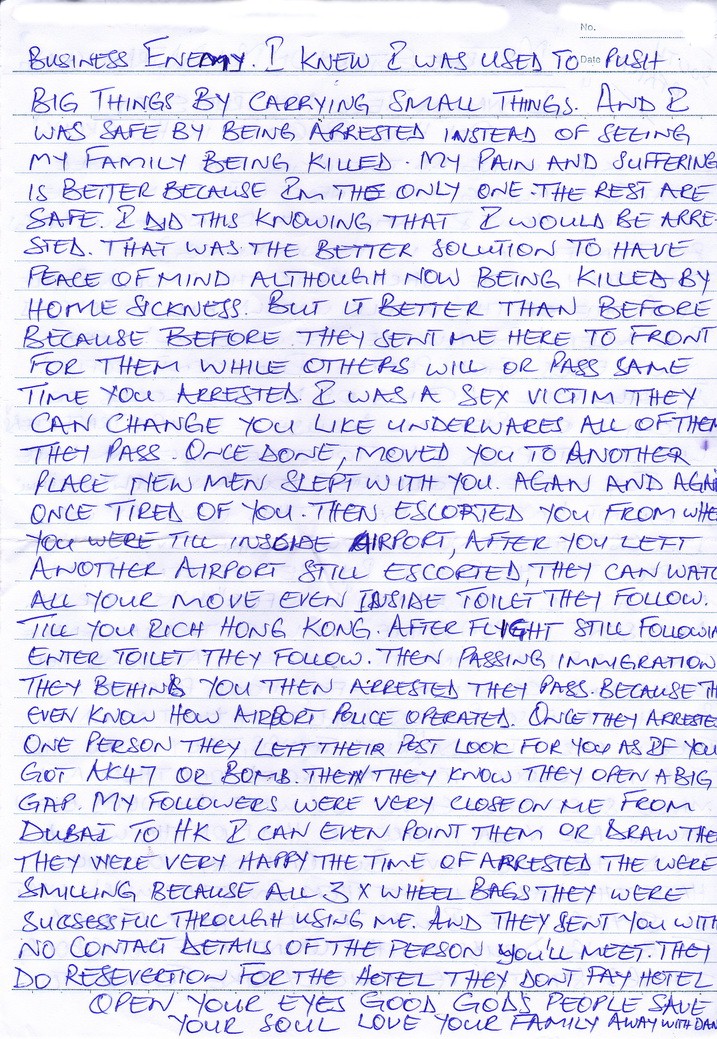 No.
BUSINESS ENEMY. I KNEW I WAS USED TO Date PUSH
BIG THINGS BY CARRYING SMALL THINGS. AND I
WAS SAFE BY BEING ARRESTED INSTEAD OF SEEING
MY FAMILY BEING KILLED. MY PAIN AND SUFFERING
IS BETTER BECAUSE IM THE ONLY ONE. THE REST ARE
SAFE. I DID THIS KNOWING THAT I WOULD BE ARRE-
STED. THAT WAS THE BETTER SOLUTION TO HAVE
PEACE OF MIND ALTHOUGH NOW BEING KILLED BY
HOME SICKNESS. BUT IT BETTER THAN BEFORE
BECAUSE BEFORE THEY SENT ME HERE TO FRONT
FOR THEM WHILE OTHERS WILL OR PASS SAME
TIME YOU ARRESTED. I WAS A SEX VICTIM THEY
CAN CHANGE YOU LIKE UNDERWARES ALL OF THEM
THEY PASS. ONCE DONE, MOVED YOU TO ANOTHER
PLACE NEW MEN SLEPT WITH YOU. AGAIN AND AGAI
ONCE TIRED OF YOU. THEN ESCORTED YOU FROM WHE
YOU WERE TILL INSIDE AIRPORT, AFTER YOU LEFT
ANOTHER AIRPORT STILL ESCORTED, THEY CAN WATC
ALL YOUR MOVE EVEN INSIDE TOILET THEY FOLLOW.
TILL YOU RICH HONG KONG. AFTER FLIGHT STILL FOLLOWIN
ENTER TOILET THEY FOLLOW. THEN PASSING IMMIGRATION
THEY BEHIND YOU THEN ARRESTED THEY PASS. BECAUSE TH
EVEN KNOW HOW AIRPORT POLICE OPERATED. ONCE THEY ARRESTED
ONE PERSON THEY LEFT THEIR POST LOOK FOR YOU AS IF YOU
GOT AK47 OR BOMB. THEN THEY KNOW THEY OPEN A BIG
GAP. MY FOLLOWERS WERE VERY CLOSE ON ME FROM
DUBAI TO HK I CAN EVEN POINT THEM OR DRAW THE
THEY WERE VERY HAPPY THE TIME OF ARRESTED THE WERE
SMILING BECAUSE ALL 3 X WHEEL BAGS THEY WERE
SUCCESSFUL THROUGH USING ME. AND THEY SENT YOU WITH
NO CONTACT DETAILS OF THE PERSON YOU'LL MEET. THEY
DO RESEVERTION FOR THE HOTEL THEY DONT PAY HOTEL
OPEN YOUR EYES GOOD GODS PEOPLE SAVE
YOUR SOUL LOVE YOUR FAMILY AWAY WITH DAN